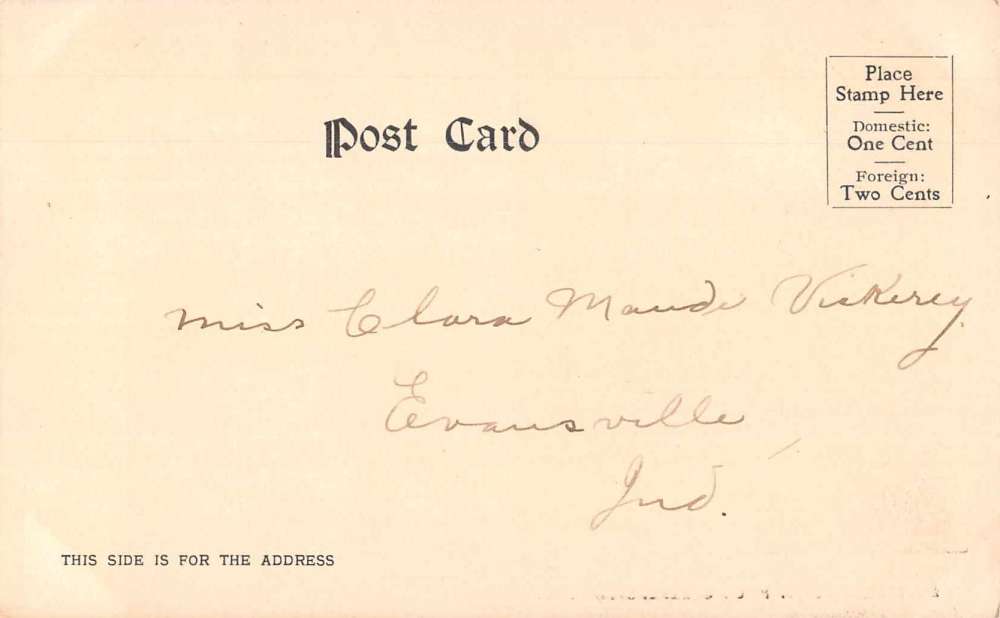 Post Card
Place
Stamp Here
Domestic:
One Cent
Foreign:
Two Cents
Miss Clara Maude Viskerey
Evansville,
Ind.
THIS SIDE IS FOR THE ADDRESS